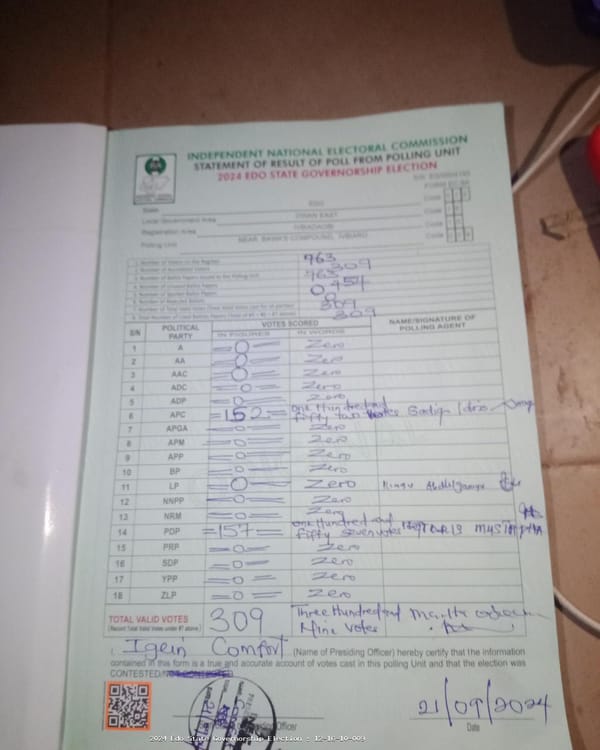 INDEPENDENT NATIONAL ELECTORAL COMMISSION
STATEMENT OF RESULT OF POLL FROM POLLING UNIT
2024 EDO STATE GOVERNORSHIP ELECTION
State EDO
Local Government Area ETSAKO EAST Code
Registration Area Code
Polling Unit NEAR COMPOUND, Code
1 Number of Voters on the Register 963
2 Number of Accredited Voters 309
3 Number of Ballot Papers Issued to the Polling Unit 963
4 Number of Unused Ballot Papers 654
5 Number of Spoiled Ballot Papers 0
6 Number of Rejected Ballots 0
7 Number of Total Valid Votes 309
8 Total Number of Used Ballot Papers 309
S/N POLITICAL PARTY VOTES SCORED NAME/SIGNATURE OF POLLING AGENT
IN FIGURES IN WORDS
1 A =0= Zero
2 AA =0= Zero
3 AAC =0= Zero
4 ADC =0= Zero
5 ADP =0= Zero
6 APC =152= one Hundred and fifty two votes Sadiq Idris
7 APGA =0= Zero
8 APM =0= Zero
9 APP =0= Zero
10 BP =0= Zero
11 LP =0= Zero
12 NNPP =0= Zero
13 NRM =0= Zero
14 PDP =157= one Hundred and fifty seven votes
15 PRP =0= Zero
16 SDP =0= Zero
17 YPP =0= Zero
18 ZLP =0= Zero
TOTAL VALID VOTES 309 Three Hundred and Nine votes
I, Igein Comfort (Name of Presiding Officer) hereby certify that the information
contained in this form is a true and accurate account of votes cast in this polling Unit and that the election was
CONTESTED/NOT CONTESTED
21/09/2024
Officer Date
2024 Edo State Governorship Election : 12-10-10-009